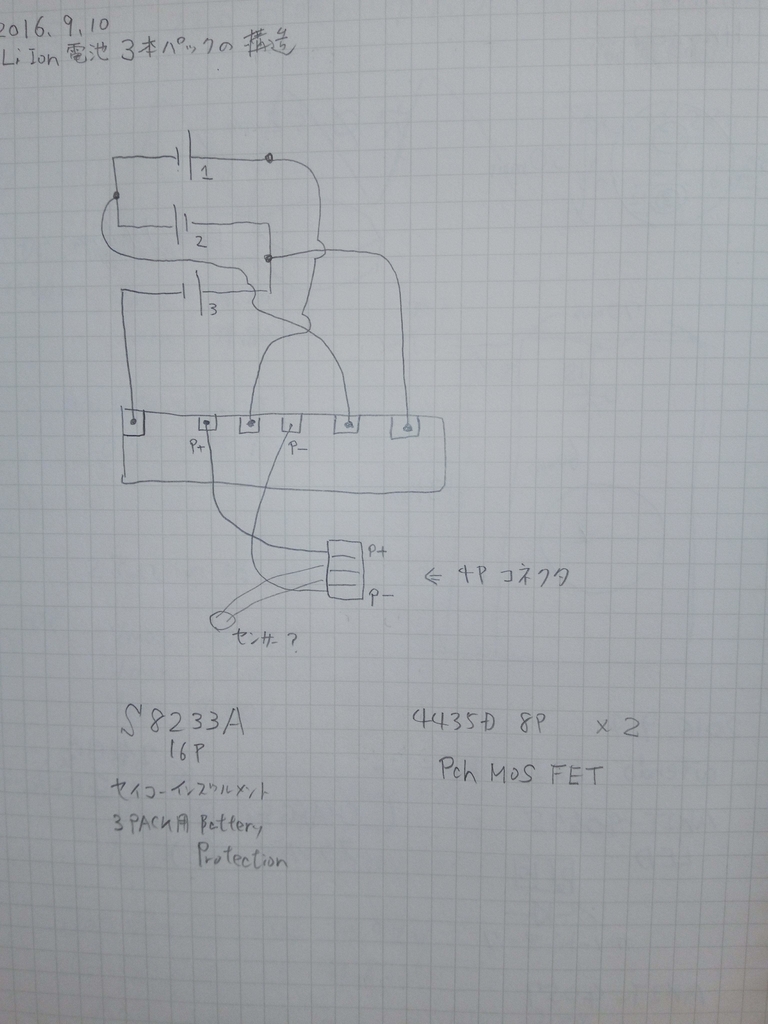 2016.9.10
Li Ion 電池 3本パックの構造
1
2
3
P+
P-
P+
← 4P コネクタ
P-
センサー?
S8233A
16P
セイコーインスツルメント
3PACK用 Battery
Protection
4435D 8P ×2
Pch MOS FET